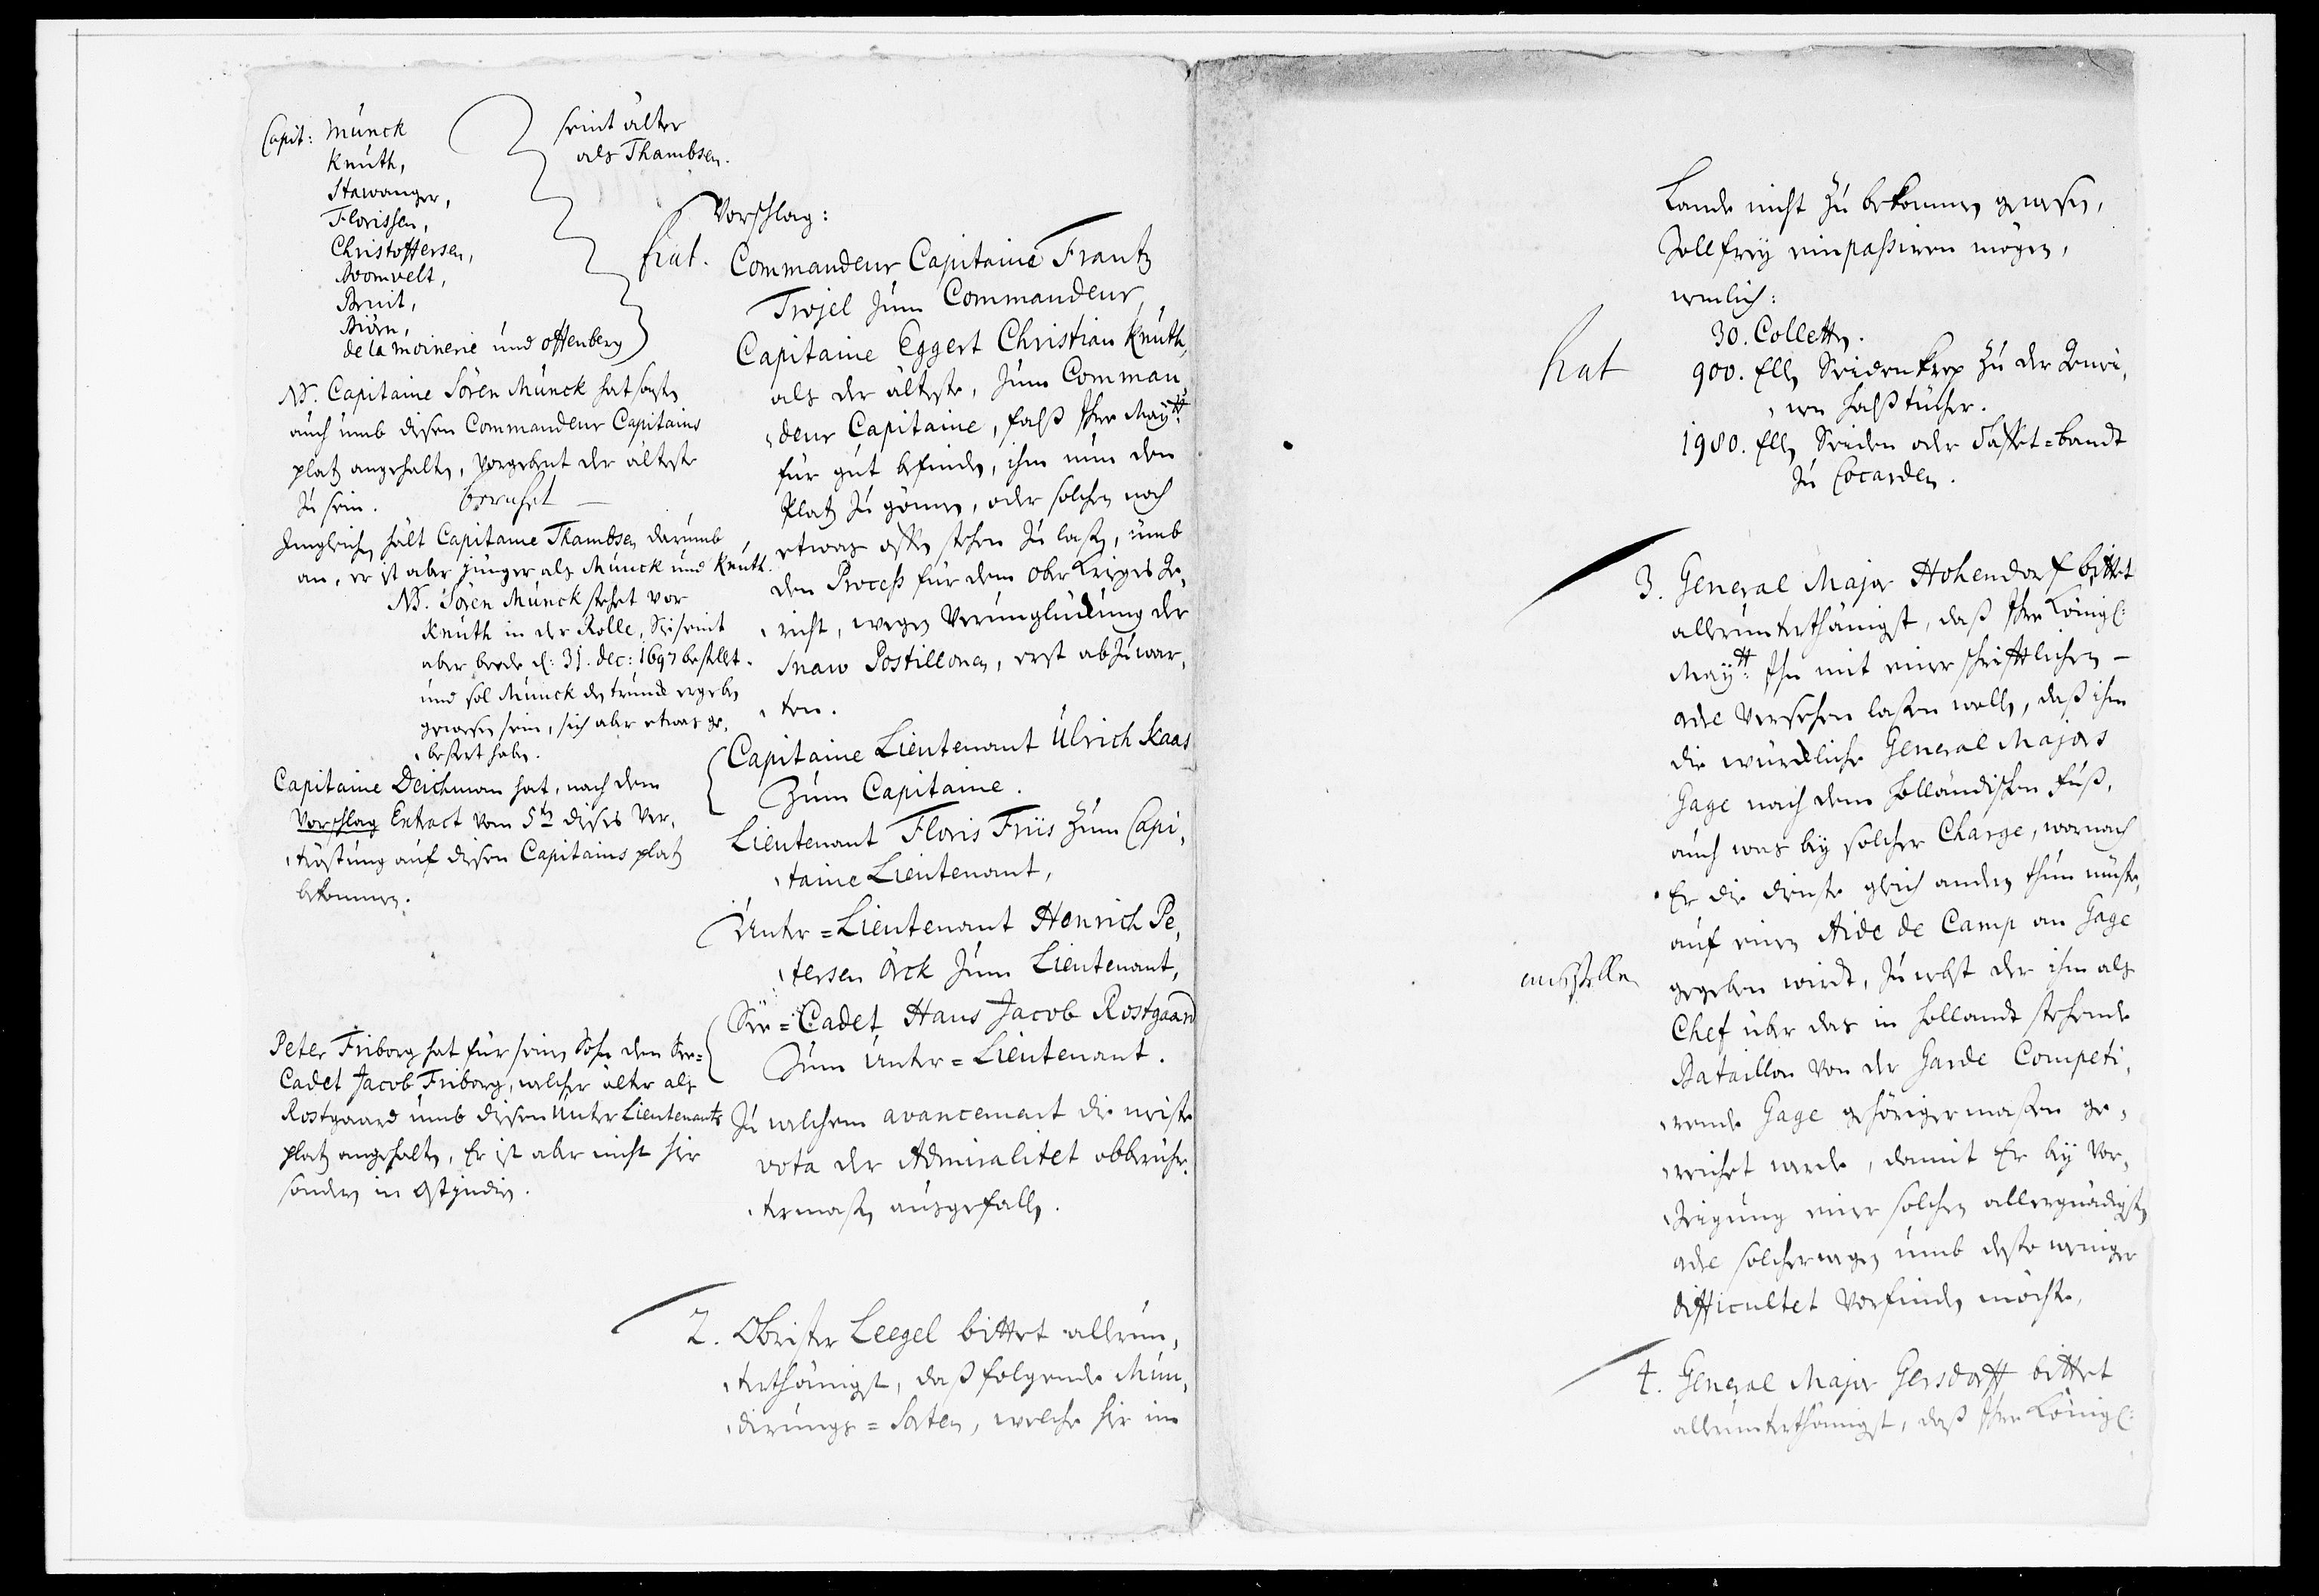 Capit: Münck
Knúth,
Stawanger,
Florissen,
Christoffersen,
Bruit,
Biörn,
de la Moinerie und Offenberg
seint älter
als Thambsen.
NB. Capitaine Sören Münck hat sonsten
auch umb diesen Commandeur Capitains
platz angehalten, Vorgebent der älteste
zu sein. beruhet —
Imgleichen hält Capitaine Thambsen darumb
an, er ist aber jünger als Münck und Knuth.
NB. Sören Münck stehet vor
Knuth in der Rolle, Sie seint
aber beede d: 31. dec: 1697 bestellt.
und sol Münck dem trunck ergeben
gewesen sein, sich aber etwas ge,
,bessert haben.
Capitaine Deichman hat, nach dem
Vorschlag Extract vom 5ten dieses Ver,
,tröstung auf diesen Capitains platz
bekommen.
Peter Friborg hat für seinen Sohn den See=
Cadet Jacob Friborg, welcher älter als
Rostgaard umb diesen Unter Lieutenants
platz angehalten, Er ist aber nicht hier
sondern in Ostjndien.
Vorschlag:
fiat. Commandeur Capitaine Frantz
Trojel zum Commandeur,
Capitaine Eggert Christian Knuth,
als der älteste, zum Comman,
,deur Capitaine, falß Ihre Maytt:
für gut befinden, ihm nun den
Platz zu gönnen, oder solchen noch
etwas offen stehen zu laßen, umb
den Process für dem Ober Krieges Ge,
,richt, wegen Verunglückung der
Snaw Postillonen, erst abzuwar,
,ten.
Capitaine Lieutenant Ulrich Kaas
Zum Capitaine.
Lieutenant Floris Friis Zum Capi,
,taine Lieutenant,
Unter=Lieutenant Henrich Pe,
,tersen Örck zum Lieutenant,
See=Cadet Hans Jacob Rostgaard
zum Unter=Lieutenant.
Zu welchem avancement die meiste
vota der Admiralitet obberühr,
,termaßen ausgefallen.
2. Obrister Leegel bittet allerun,
,terthänigst, daß folgende Mun,
,dirungs=Sorten, welche hier im
Lande nicht zu bekommen gewesen,
Zollfrey einpaßiren mögen,
nemlich:
30. Collette.
fiat 900. Ellen Seidenkrep zu der Reuter
,ern Halßtücher.
1980. Ellen Seiden oder Taffet=bandt
zu Cocarden.
3. General Major Hohendorf bittet
allerunterthänigst, daß Ihre Königl:
Maytt: Ihn mit einer schrifftlichen —
ordre Versehen laßen wollen, daß ihm
die würckliche General Majors
Gage nach dem Holländischen Fuß,
auch was bey solcher Charge, wornach
Er die dienste gleich andern thun müste,
auf einen Aide de Camp an Gage
ausstellen gegeben wirdt, zu nebst der ihm als
Chef über das in Hollandt stehende
Bataillon von der Garde Competi,
,rende Gage gehörigermaßen ge,
,reichet werde, damit Er bey Vor,
,zeigung einer solchen allergnädigsten
ordre solcherwegen umb desto weniger
difficultet Vorfinden möchte.
4. General Major Gersdorff bittet
allerunterthänigst, daß Ihre Königl: